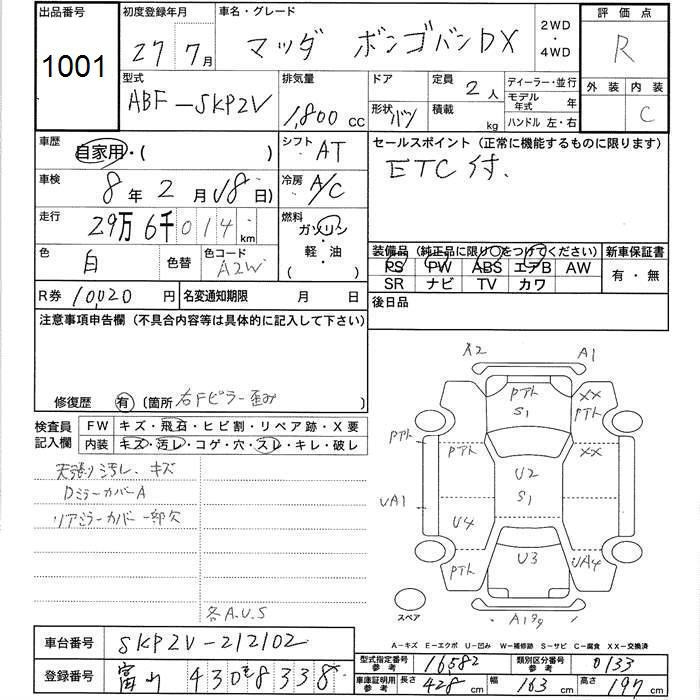 出品番号
1001
初度登録年月
27 7月
車名・グレード
マツダ ボンゴバンDX
2WD
・
4WD
評価点
R
外装 内装
C
型式
ABF-SKP2V
排気量
1,800 cc
ドア
形状 バン
定員
2人
積載 kg
ディーラー・並行
モデル年式 年
ハンドル 左・右
車歴
自家用・( )
シフト
AT
セールスポイント (正常に機能するものに限ります)
ETC付.
車検
8年 2月 18日)
冷房
A/C
走行
29万 6千 0 1 4 km
燃料
ガソリン
・
軽・油
( )
色
白
色替
色コード
A2W
装備品 (純正品に限り○をつけてください)
PS PW ABS エアB AW
SR ナビ TV カワ
新車保証書
有・無
R券 10,020円
名変通知期限 月 日
後日品
注意事項申告欄 (不具合内容等は具体的に記入して下さい)
修復歴 有 (箇所 右Fピラー歪み
検査員
記入欄
FW キズ・飛石・ヒビ割・リペア跡・X要
内装 キズ・汚レ・コゲ・穴・スレ・キレ・破レ
天張り汚レ.キズ
DミラーカバーA
リアミラーカバー一部欠
各A.U.S
X2 A1
Pプト XX
S1 Pプト
Pプト Pプト XX
U2
UA1 S1
U4
U3
Pプト UA4
スペア
A-キズ E-エクボ U-凹み W-補修跡 S-サビ C-腐食 XX-交換済
車台番号
SKP2V-212102
登録番号
富山 430 を 8338
型式指定番号
参考
16582
類別区分番号
参考
0133
車庫証明用
参考
長さ 428 cm
幅 163 cm
高さ 197 cm